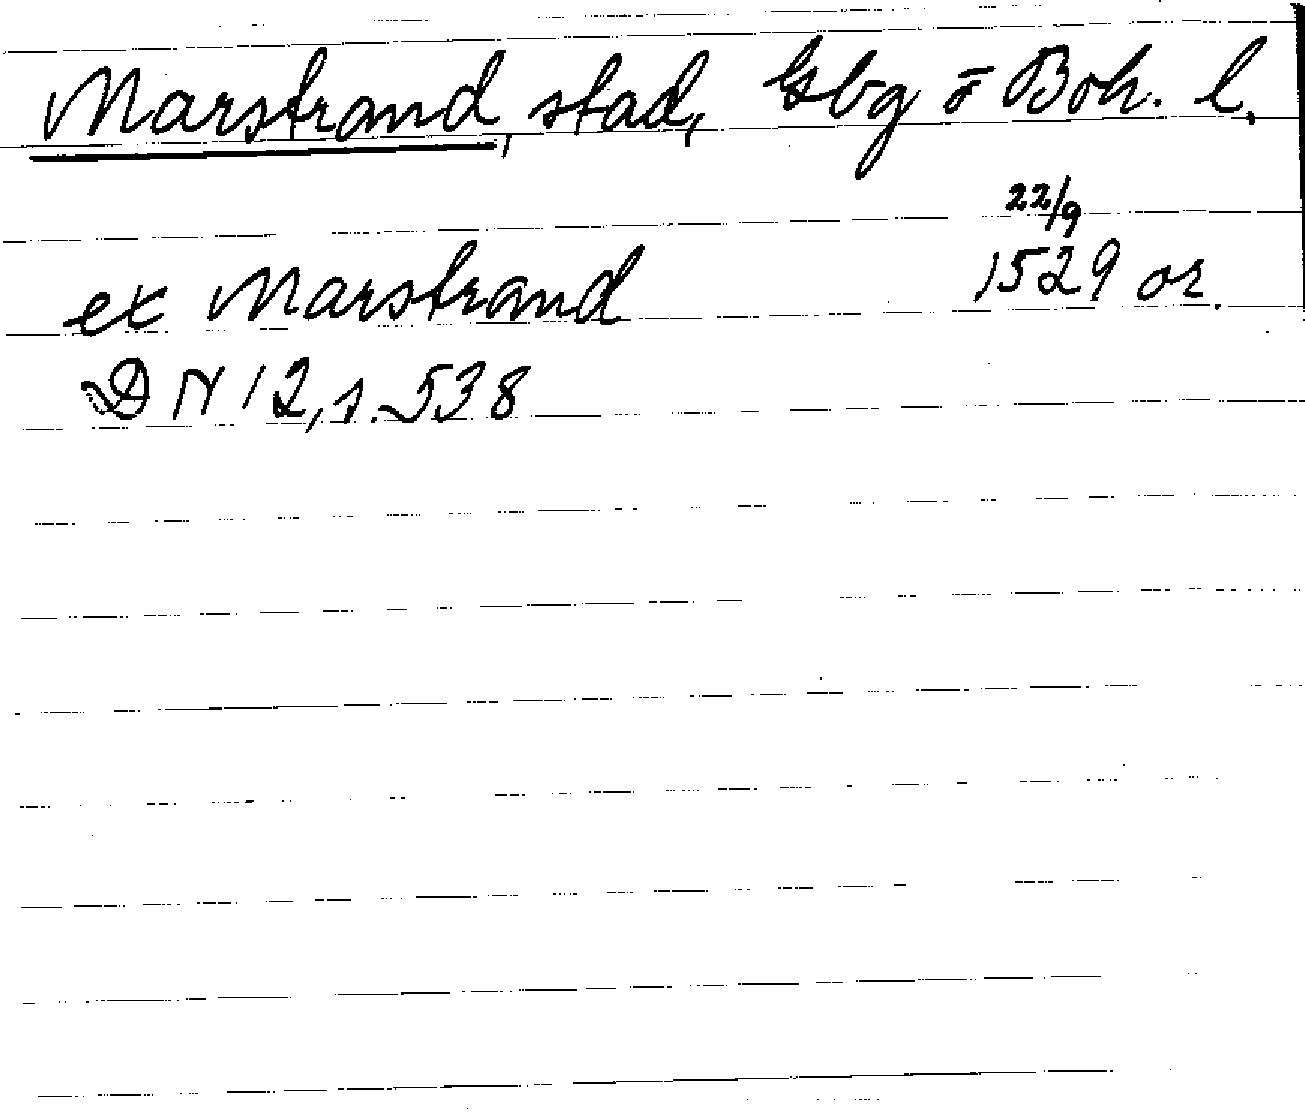 Marstrand, stad, Gbg ō Boh. l.
22/9
ex Marstrand 1529 or.
DN 12, s. 538